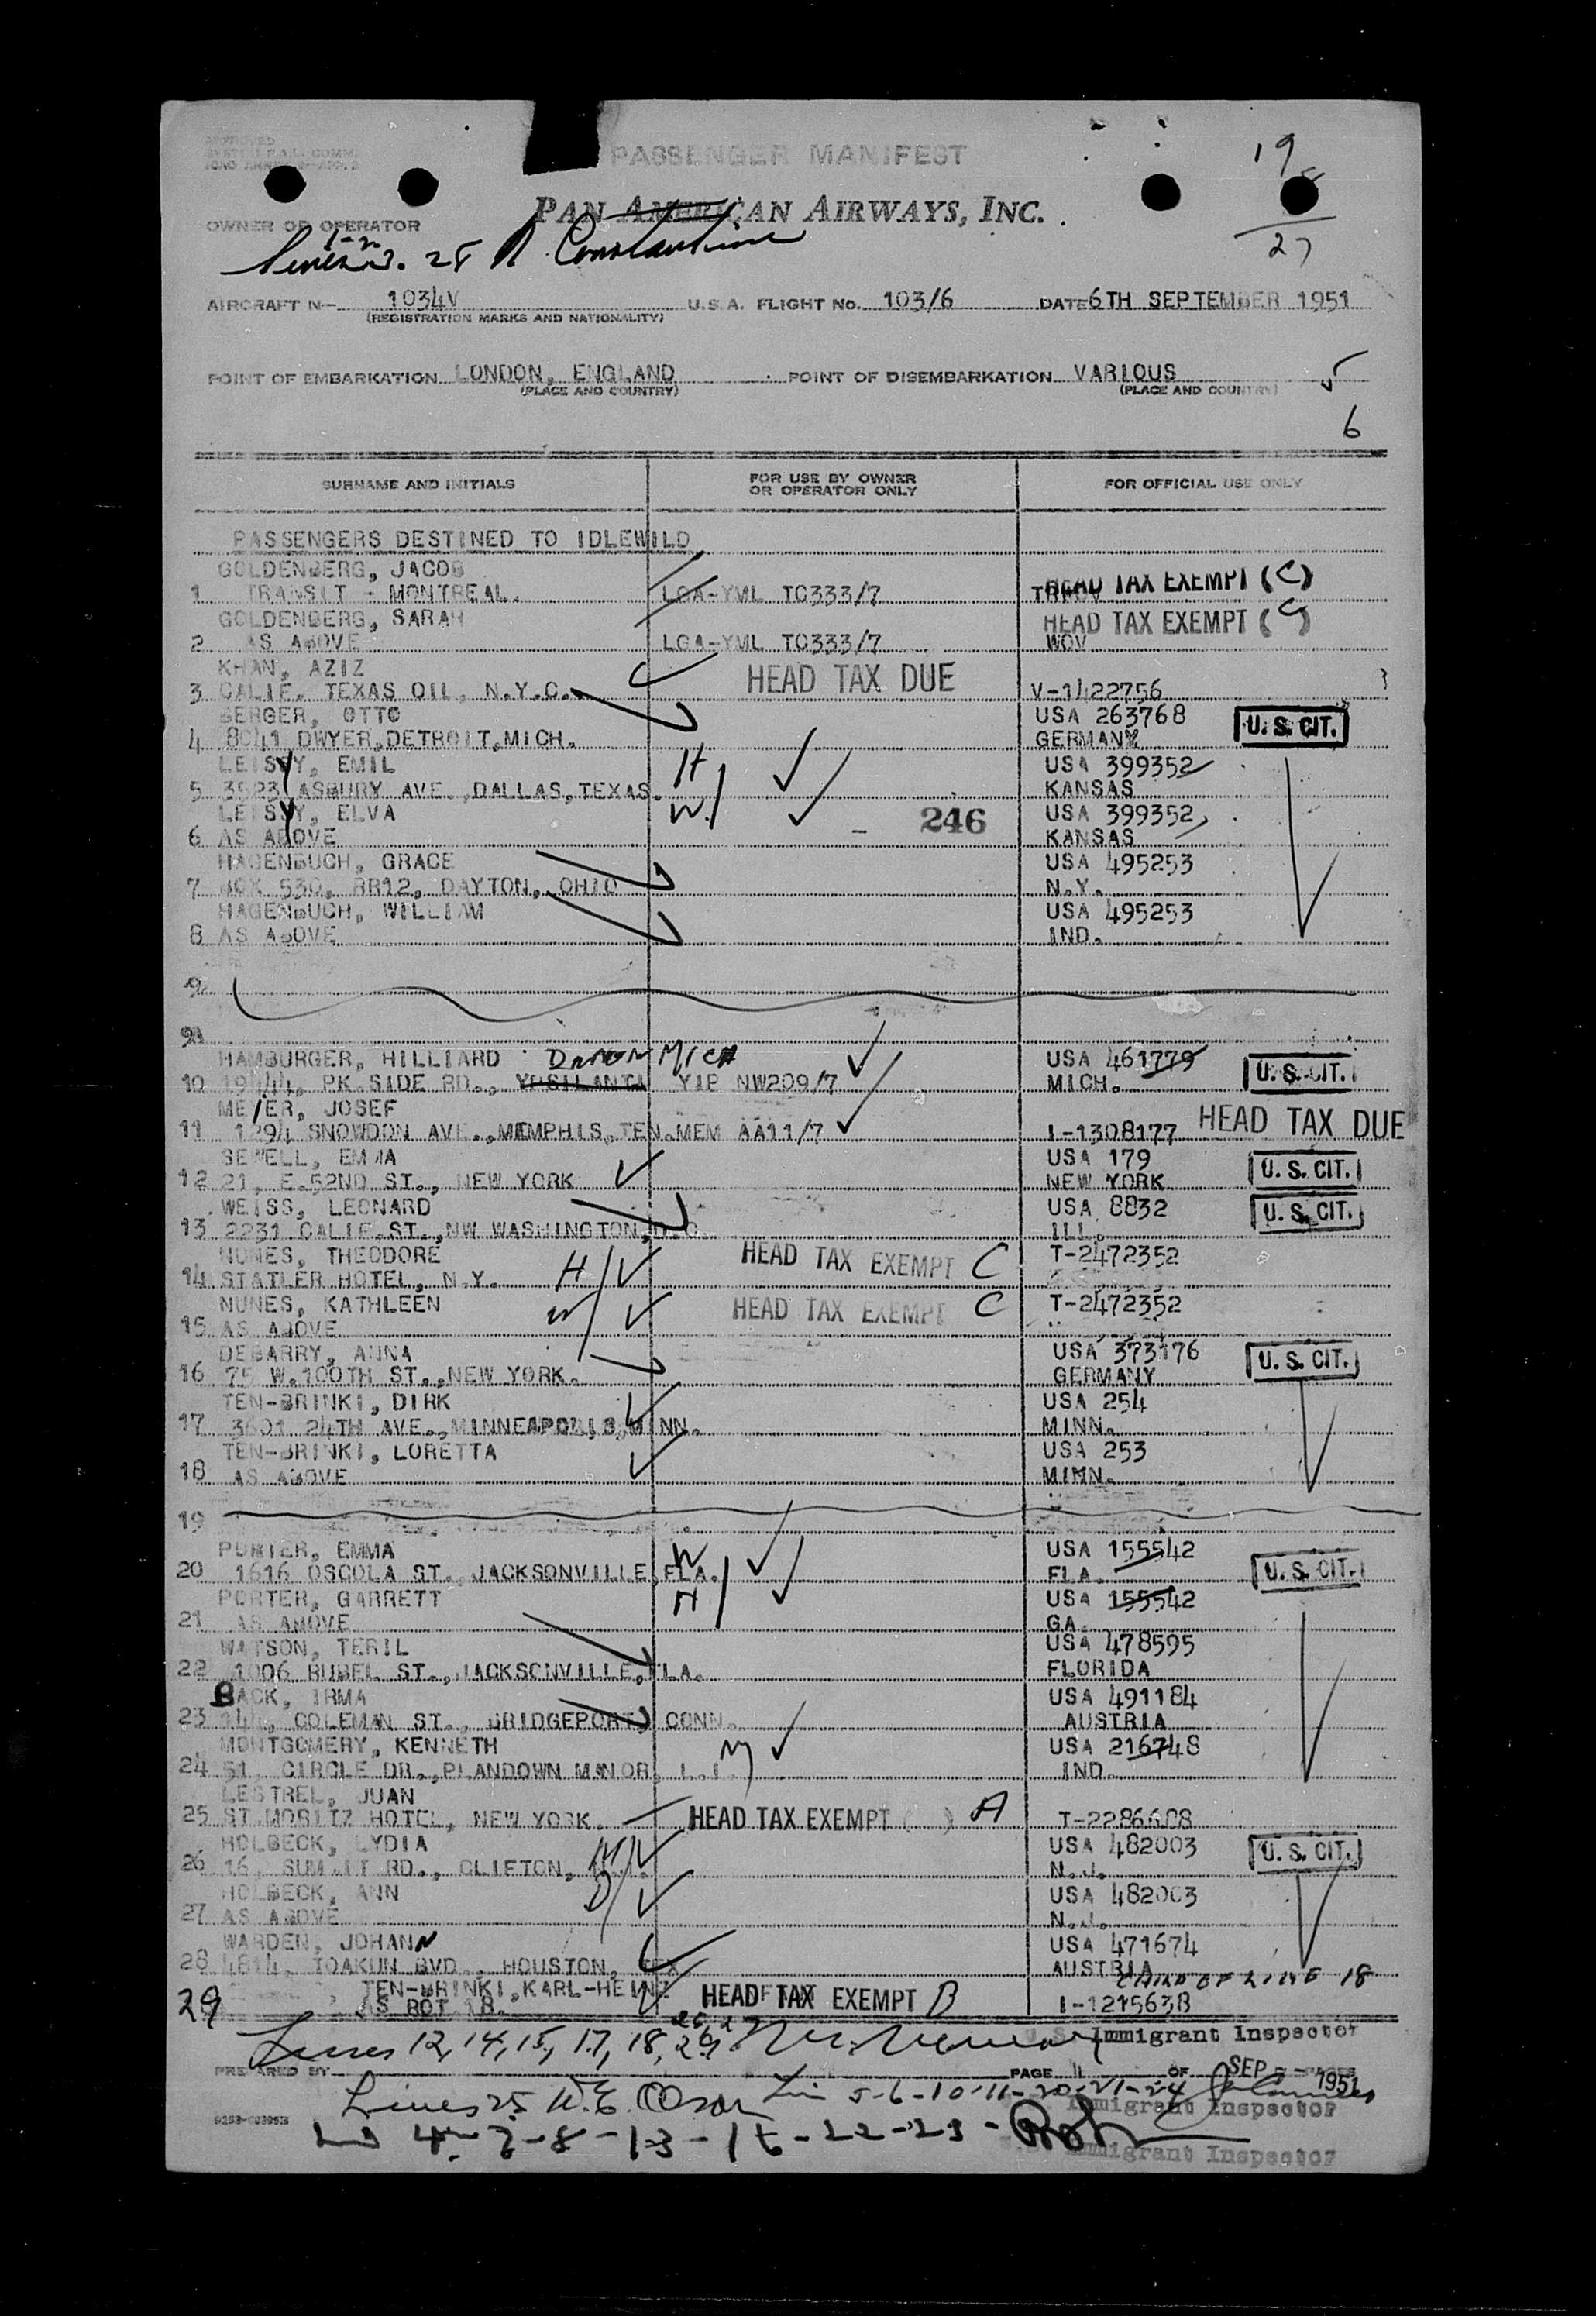 APPROVED
PASSENGER MANIFEST
19
PAN AMERICAN AIRWAYS, INC.
OWNER OR OPERATOR
27
28 A. Constantine
AIRCRAFT N— 1034V U.S.A. FLIGHT No. 103/6 DATE 6TH SEPTEMBER 1951
(REGISTRATION MARKS AND NATIONALITY)
POINT OF EMBARKATION LONDON, ENGLAND POINT OF DISEMBARKATION VARIOUS
(PLACE AND COUNTRY) (PLACE AND COUNTRY)
5
6
SURNAME AND INITIALS FOR USE BY OWNER OR OPERATOR ONLY FOR OFFICIAL USE ONLY
PASSENGERS DESTINED TO IDLEWILD
GOLDENBERG, JACOB HEAD TAX EXEMPT (C)
1 TRANSIT - MONTREAL. LGA-YML TC333/7
GOLDENBERG, SARAH HEAD TAX EXEMPT (C)
2 AS ABOVE LGA-YML TC333/7 WOV
KHAN, AZIZ HEAD TAX DUE
3 CALIF. TEXAS OIL, N.Y.C. V-1422756
BERGER, OTTO USA 263768 U.S. CIT.
4 8041 DWYER,DETROIT,MICH. GERMANY
LEISSY, EMIL H USA 399352
5 3523 ASBURY AVE.,DALLAS,TEXAS. KANSAS
LEISSY, ELVA W. 246 USA 399352
6 AS ABOVE KANSAS
HAGENBUCH, GRACE USA 495253
7 BOX 530, RR12, DAYTON, OHIO N.Y.
HAGENBUCH, WILLIAM USA 495253
8 AS ABOVE IND.
9
9A
HAMBURGER, HILLIARD MICH USA 461779 U.S. CIT.
10 19444, PK.SIDE RD., YPSILANTI YIP NW209/7 MICH.
MEIER, JOSEF HEAD TAX DUE
11 1294 SNOWDON AVE.,MEMPHIS,TEN. MEM AA11/7 I-1308177
SEWELL, EMMA USA 179 U.S. CIT.
12 21, E.52ND ST., NEW YORK NEW YORK
WEISS, LEONARD USA 8832 U.S. CIT.
13 2231 CALIF.ST.,NW WASHINGTON,D.C. ILL.
NUNES, THEODORE H HEAD TAX EXEMPT C T-2472352
14 STATLER HOTEL, N.Y.
NUNES, KATHLEEN W HEAD TAX EXEMPT C T-2472352
15 AS ABOVE
DEBARRY, ANNA USA 373176 U.S. CIT.
16 75 W.100TH ST.,NEW YORK. GERMANY
TEN-BRINKI, DIRK USA 254
17 3601 24TH AVE.,MINNEAPOLIS,MINN. MINN.
TEN-BRINKI, LORETTA USA 253
18 AS ABOVE MINN.
19
PORTER, EMMA W USA 155542 U.S. CIT.
20 1616 OSCOLA ST., JACKSONVILLE, FLA. FLA.
PORTER, GARRETT H USA 155542
21 AS ABOVE GA.
WATSON, TERIL USA 478595
22 1006 RUBEL ST.,JACKSONVILLE,FLA. FLORIDA
BACK, IRMA USA 491184
23 144, COLEMAN ST., BRIDGEPORT, CONN. AUSTRIA
MONTGOMERY, KENNETH M USA 216748
24 51, CIRCLE DR.,PLANDOWN MANOR, L.I. IND.
LESTREL, JUAN
25 ST.MORITZ HOTEL, NEW YORK. HEAD TAX EXEMPT ( ) A T-2286688
HOLBECK, LYDIA M USA 482003 U.S. CIT.
26 16, SUMMIT RD., CLIFTON, N.J.
HOLBECK, ANN D USA 482003
27 AS ABOVE N.J.
WARDEN, JOHANN USA 471674
28 4814, YOAKUN BVD., HOUSTON, TEX. AUSTRIA
TEN-BRINKI,KARL-HEINZ CHILD OF LINE 18
29 AS BOT 18. HEAD TAX EXEMPT B I-1215638
Lines 12, 14, 15, 17, 18, 26, 27, 29 U.S. Immigrant Inspector
PREPARED BY PAGE 1 OF SEP 1951
Lines 25 W.E. Olson Lin 5-6-10-11-20-21-24 Immigrant Inspector
4-7-8-13-16-22-23- Immigrant Inspector